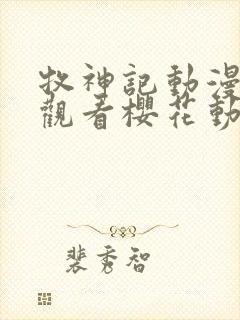 牧神記動漫
觀看櫻花動
裴秀智